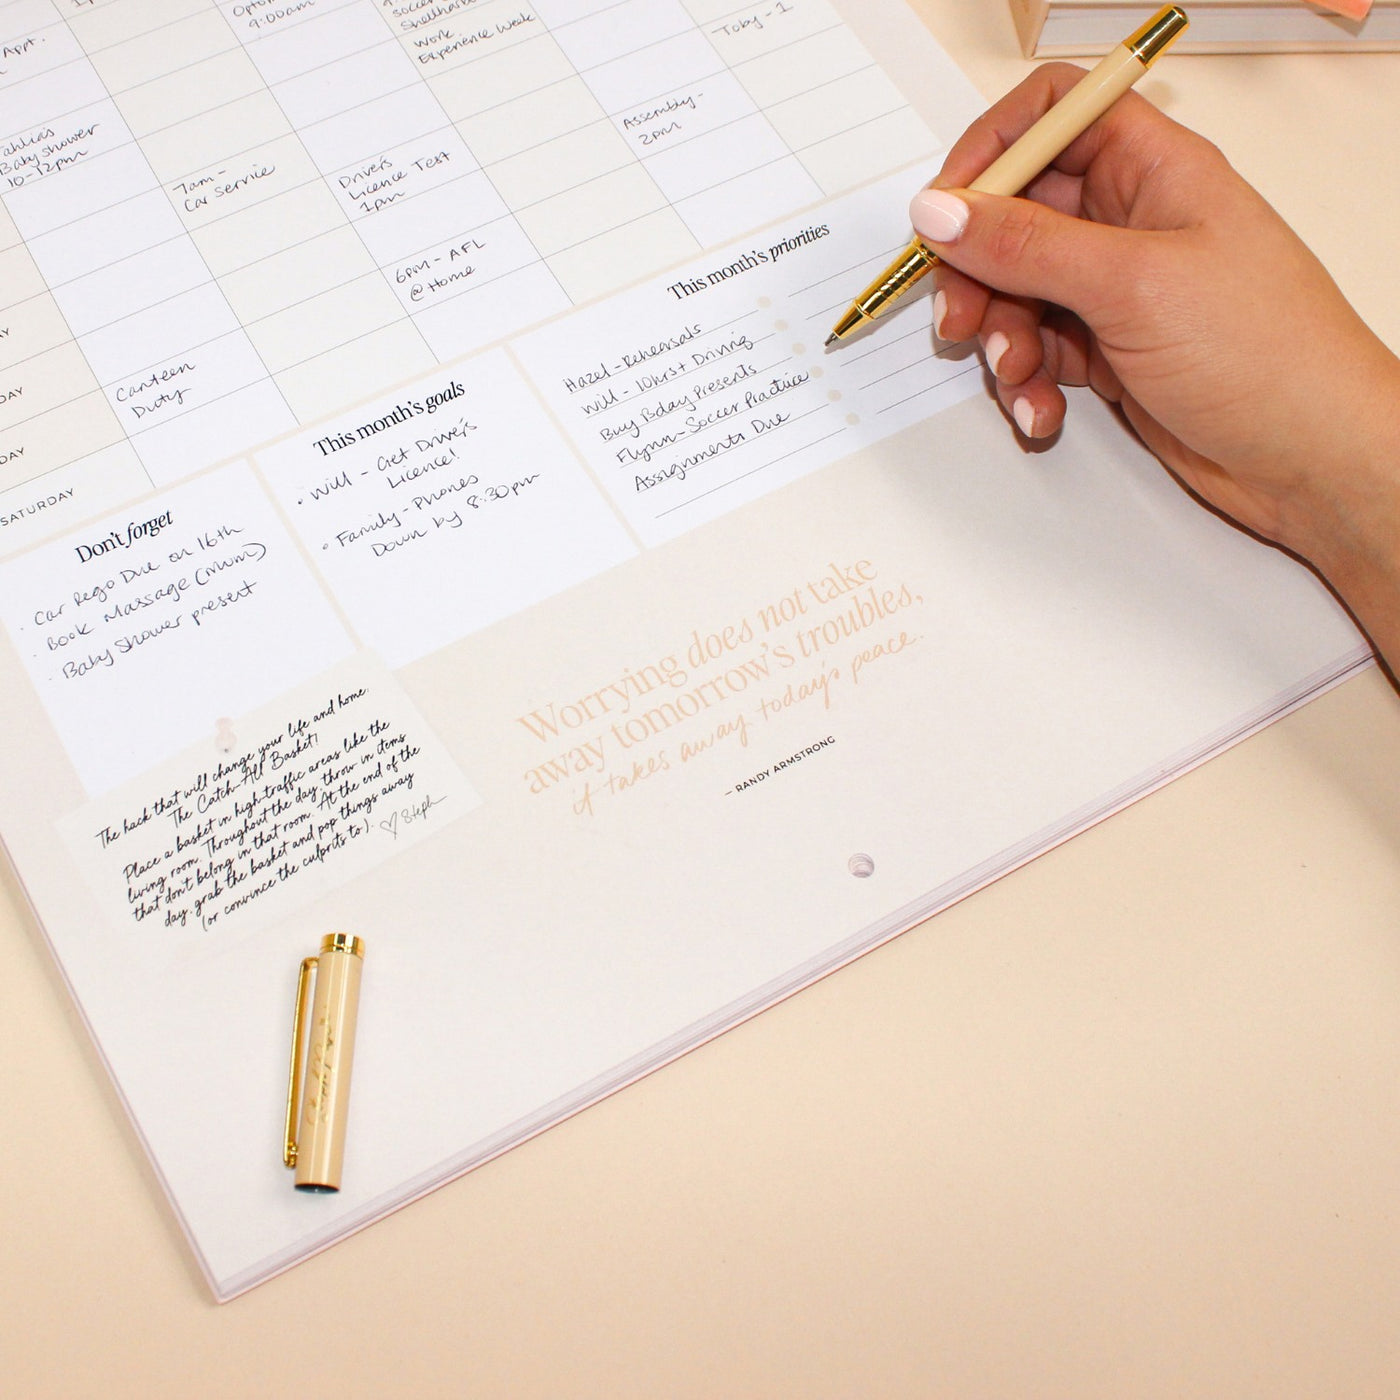 Appt.
9:00am
Work
Experience Week
Toby - 1
Baby shower
10-12pm
7am -
Car Service
Driver's
Licence Test
1pm
Assembly -
2pm
6pm - AFL
@ Home
Canteen
Duty
DAY
DAY
SATURDAY
This month's priorities
Hazel - Rehearsals
Will - 10hrs+ Driving
Buy Bday Presents
Flynn - Soccer Practice
Assignments Due
This month's goals
• Will - Get Driver's
Licence!
• Family - Phones
Down by 8:30pm
Don't forget
• Car Rego Due on 16th
• Book Massage (Mum)
• Baby Shower present
The hack that will change your life and home.
The Catch-All Basket!
Place a basket in high-traffic areas like the
living room. Throughout the day, throw in items
that don't belong in that room. At the end of the
day, grab the basket and pop things away
(or convince the culprits to).
♡ Steph
Worrying does not take
away tomorrow's troubles,
it takes away today's peace.
– RANDY ARMSTRONG